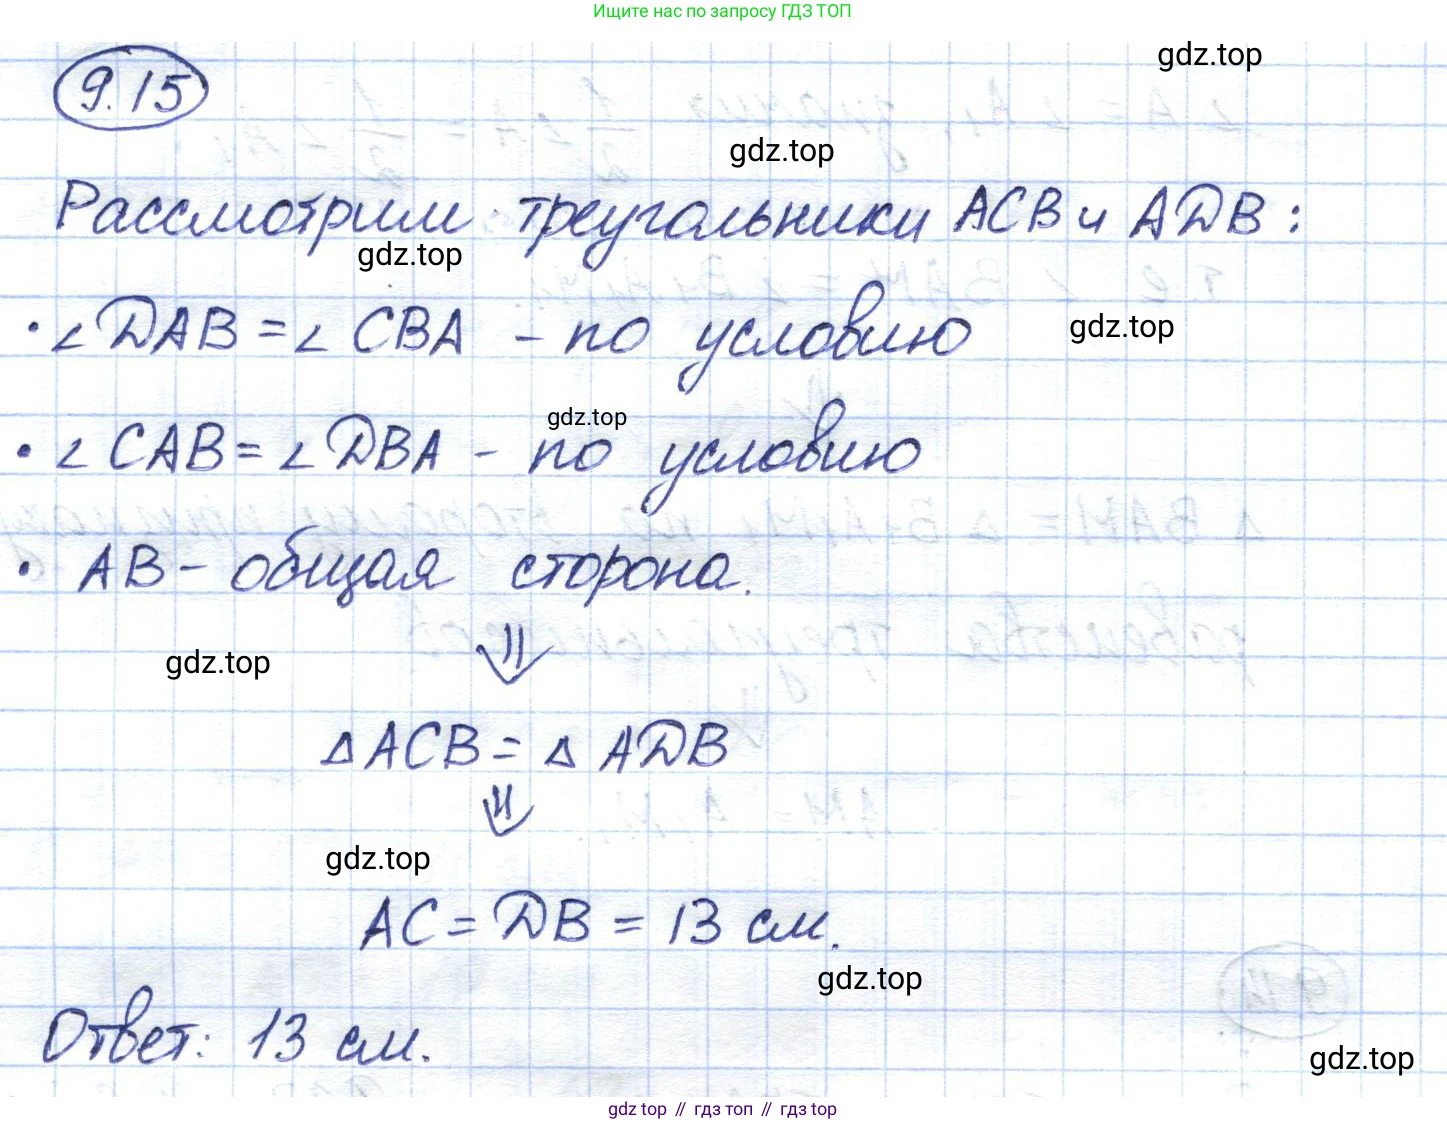 Ищите нас по запросу ГДЗ ТОП
gdz.top
9.15
gdz.top
Рассмотрим треугольники ACB и ADB:
gdz.top
∠DAB = ∠CBA - по условию
gdz.top
gdz.top
∠CAB = ∠DBA - по условию
AB - общая сторона.
⇓
gdz.top
△ACB = △ADB
⇓
gdz.top
AC = DB = 13 см.
gdz.top
Ответ: 13 см.
gdz.top
gdz top // гдз топ // гдз top